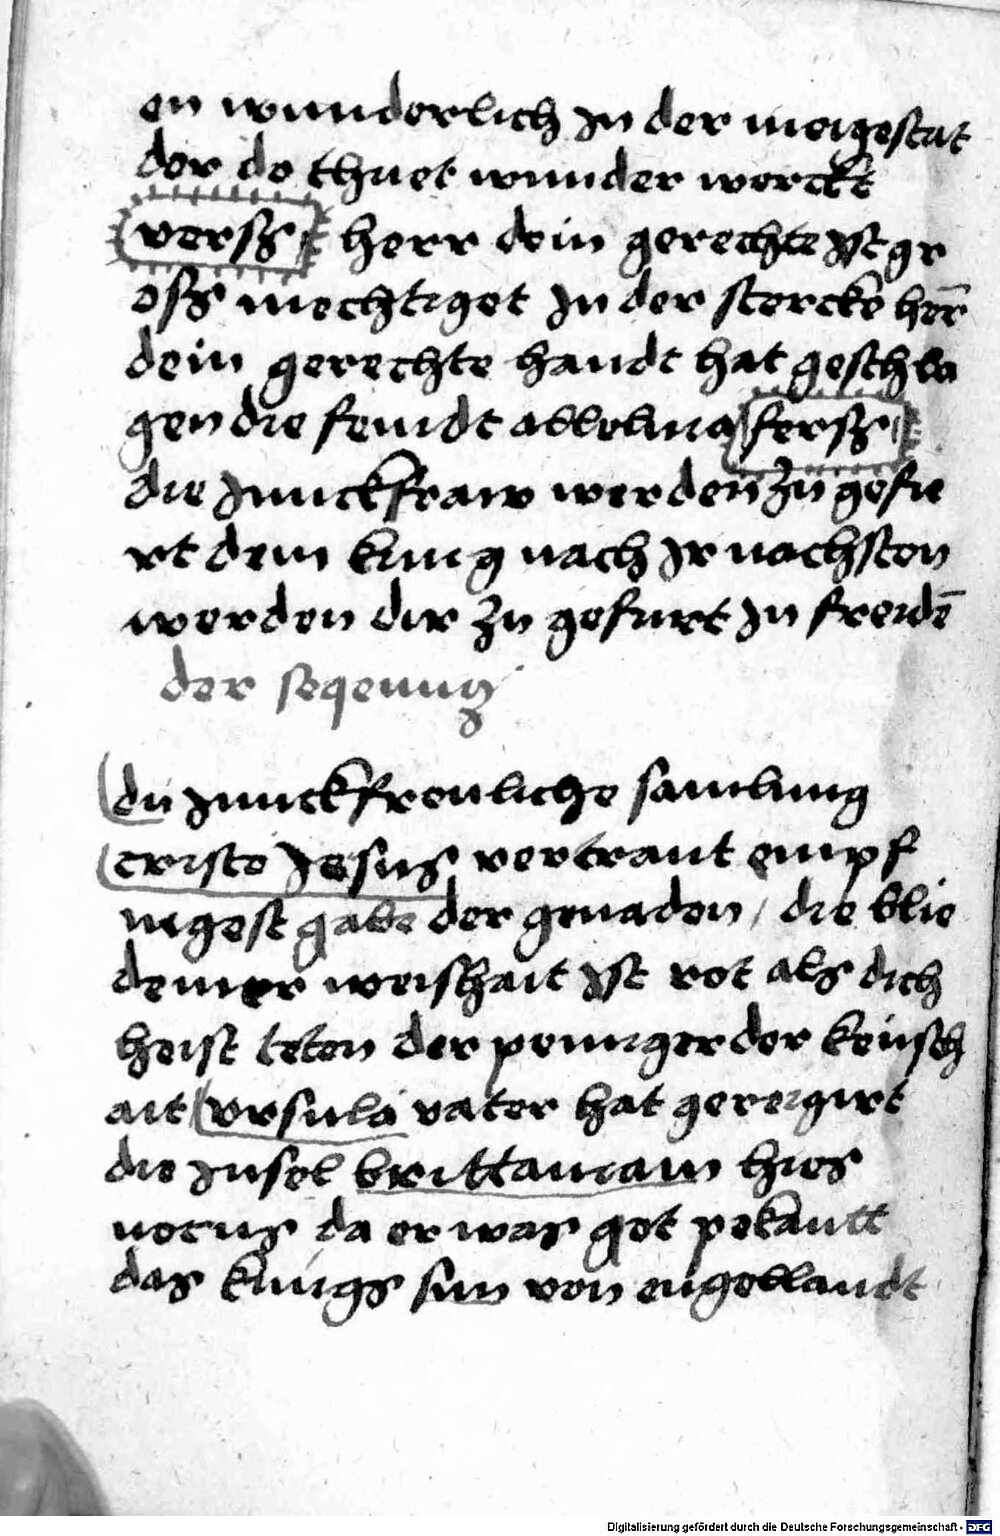 en wunderlich jn der meigestat
der do thuet wunder werckt
versß herr dein gerechte yst gr
osß mechtiget jn der stercke her̄
dein gerechte handt hat geschla
gen die feindt allelluia fersß
die junckfraw werden zu gefie
rt dem kunig nach jr nechsten
werden dir zu gefurt jn freidē
der seqenug
du junckfreuliche samlung
cristo jesus vertraut empf
ingest gabe der gnaden / die blie
demer weishait yst rot als dich
heist teten der peiniger der keüsch
ait vrsula vater hat gereigirt
die jnsel brittaniam hies
notus da er was got pekantt
das kunigs sun von engellandt
Digitalisierung gefördert durch die Deutsche Forschungsgemeinschaft - DFG